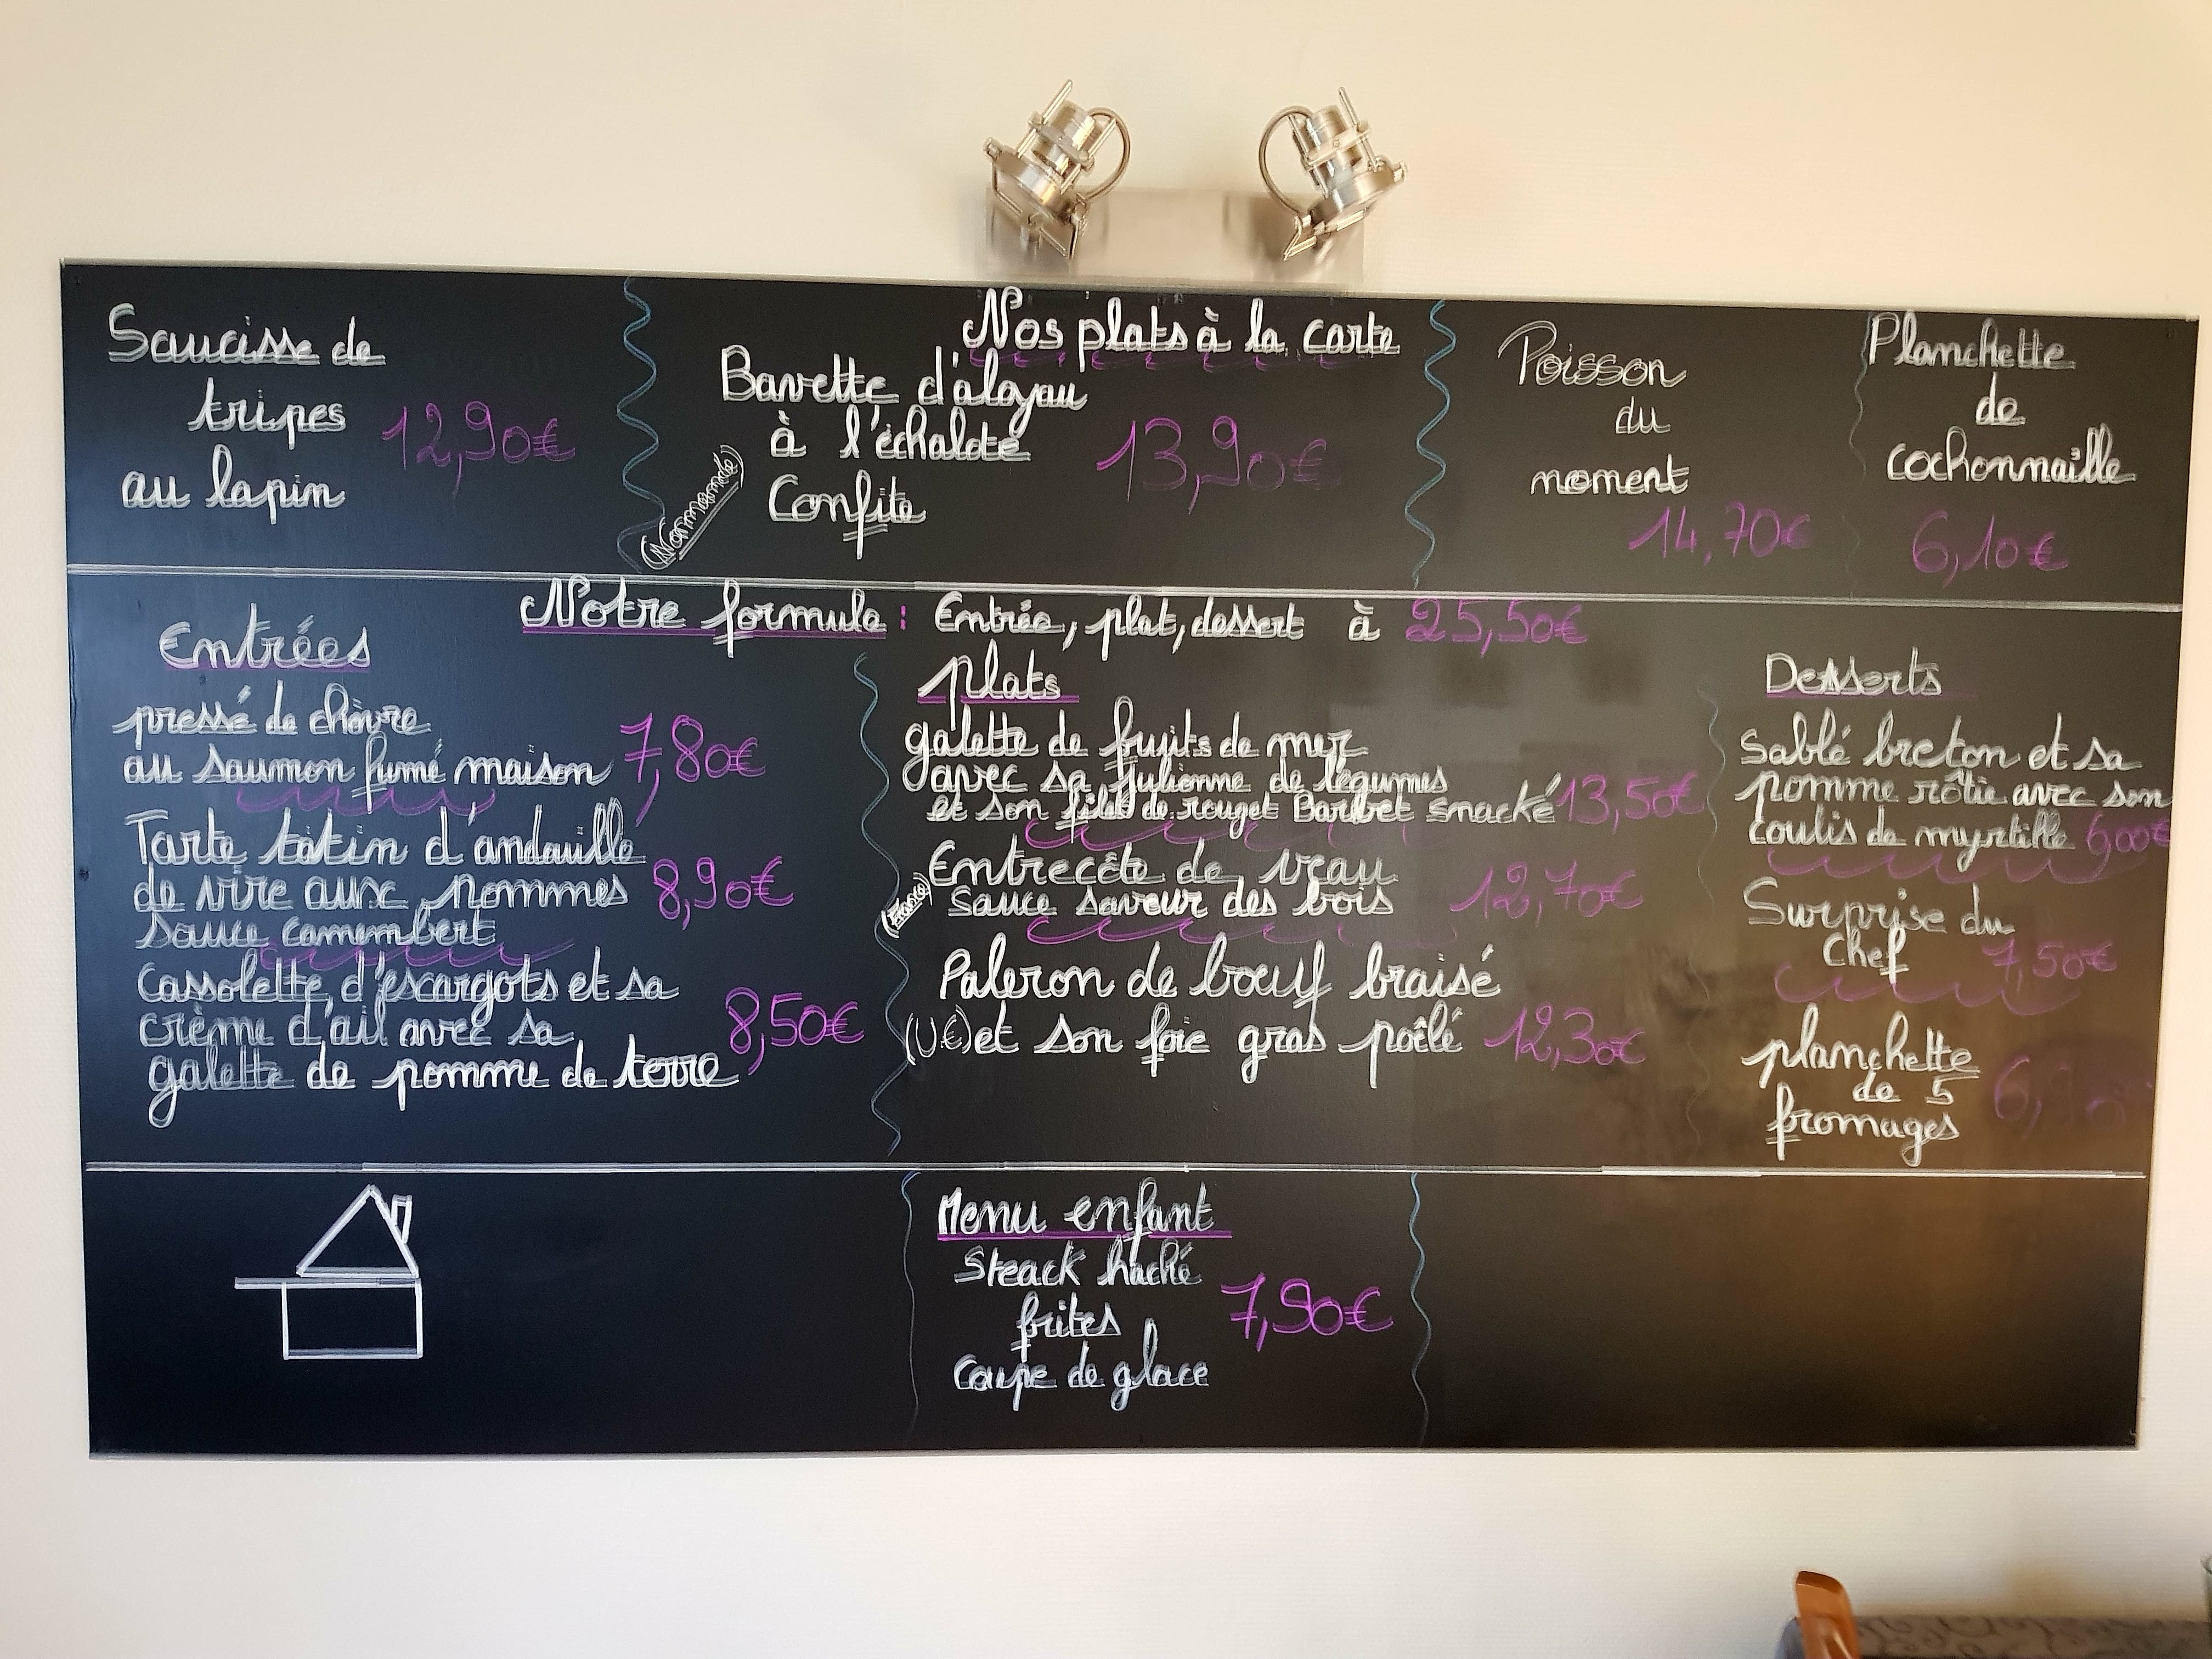 Nos plats à la carte
Saucisse de
tripes
au lapin
12,90€
Bavette d'aloyau
à l'échalote
Confite
(Normande)
13,90€
Poisson
du
moment
14,70€
Planchette
de
cochonnaille
6,10€
Notre formule : Entrée, plat, dessert à 25,50€
Entrées
pressé de chèvre
au saumon fumé maison 7,80€
Tarte tatin d'andouille
de vire aux pommes 8,90€
sauce camembert
Cassolette d'escargots et sa
crème d'ail avec sa 8,50€
galette de pomme de terre
plats
galette de fruits de mer
avec sa julienne de légumes
et son filet de rouget Barbet snacké 13,50€
Entrecôte de veau
(France) Sauce saveur des bois 12,70€
Paleron de bœuf braisé
(U€) et son foie gras poêlé 12,30€
Desserts
Sablé breton et sa
pomme rôtie avec son
coulis de myrtille 6,00€
Surprise du
Chef 7,50€
planchette
de 5
fromages
Menu enfant
Steack haché
frites
Coupe de glace
7,90€